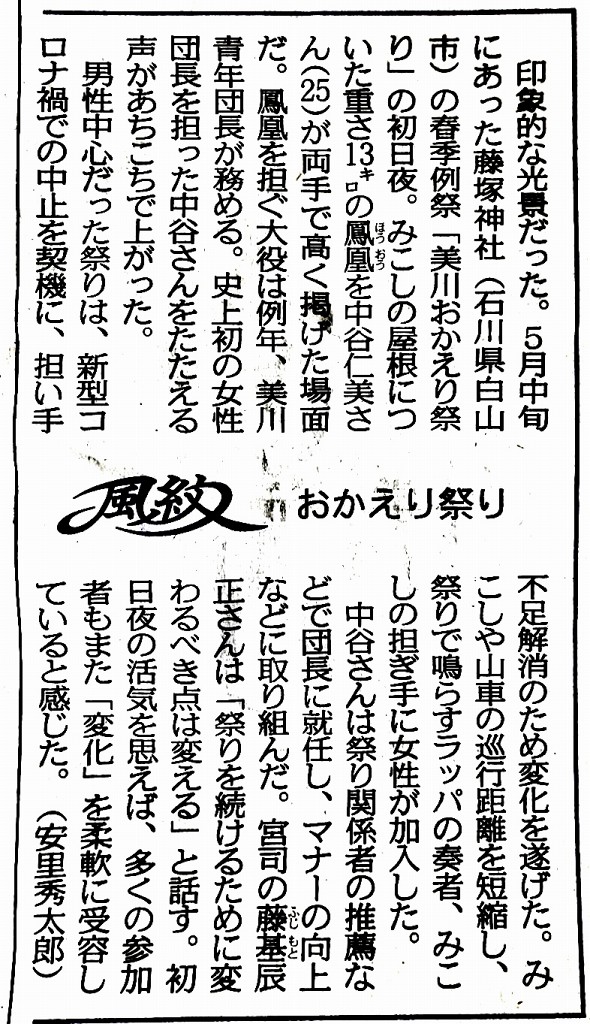 風紋
おかえり祭り
　印象的な光景だった。５月中旬
にあった藤塚神社（石川県白山
市）の春季例祭「美川おかえり祭
り」の初日夜。みこしの屋根につ
いた重さ13㌔の鳳凰を中谷仁美さ
ほうおう
ん(25)が両手で高く掲げた場面
だ。鳳凰を担ぐ大役は例年、美川
青年団長が務める。史上初の女性
団長を担った中谷さんをたたえる
声があちこちで上がった。
　男性中心だった祭りは、新型コ
ロナ禍での中止を契機に、担い手
不足解消のため変化を遂げた。み
こしや山車の巡行距離を短縮し、
祭りで鳴らすラッパの奏者、みこ
しの担ぎ手に女性が加入した。
　中谷さんは祭り関係者の推薦な
どで団長に就任し、マナーの向上
などに取り組んだ。宮司の藤基辰
ふじもと
正さんは「祭りを続けるために変
わるべき点は変える」と話す。初
日夜の活気を思えば、多くの参加
者もまた「変化」を柔軟に受容し
ていると感じた。（安里秀太郎）